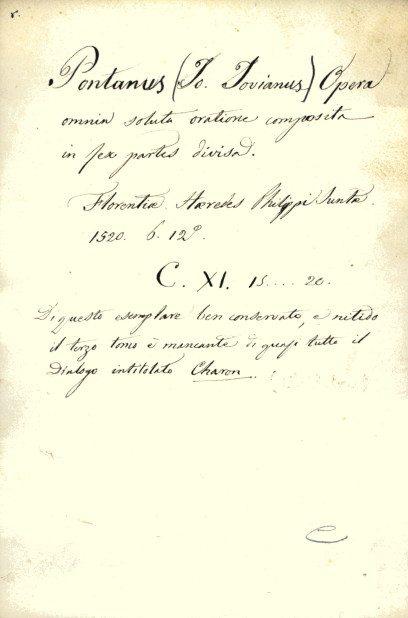 r.
Pontanus (Jo. Jovianus) Opera
omnia soluta oratione composita
in sex partes divisa.
Florentiæ Hæredes Philippi Juntæ.
1520. 6. 12º.
C. XI. 15....20.
Di questo esemplare ben conservato, e nitido
il terzo tomo è mancante di quasi tutto il
Dialogo intitolato Charon.